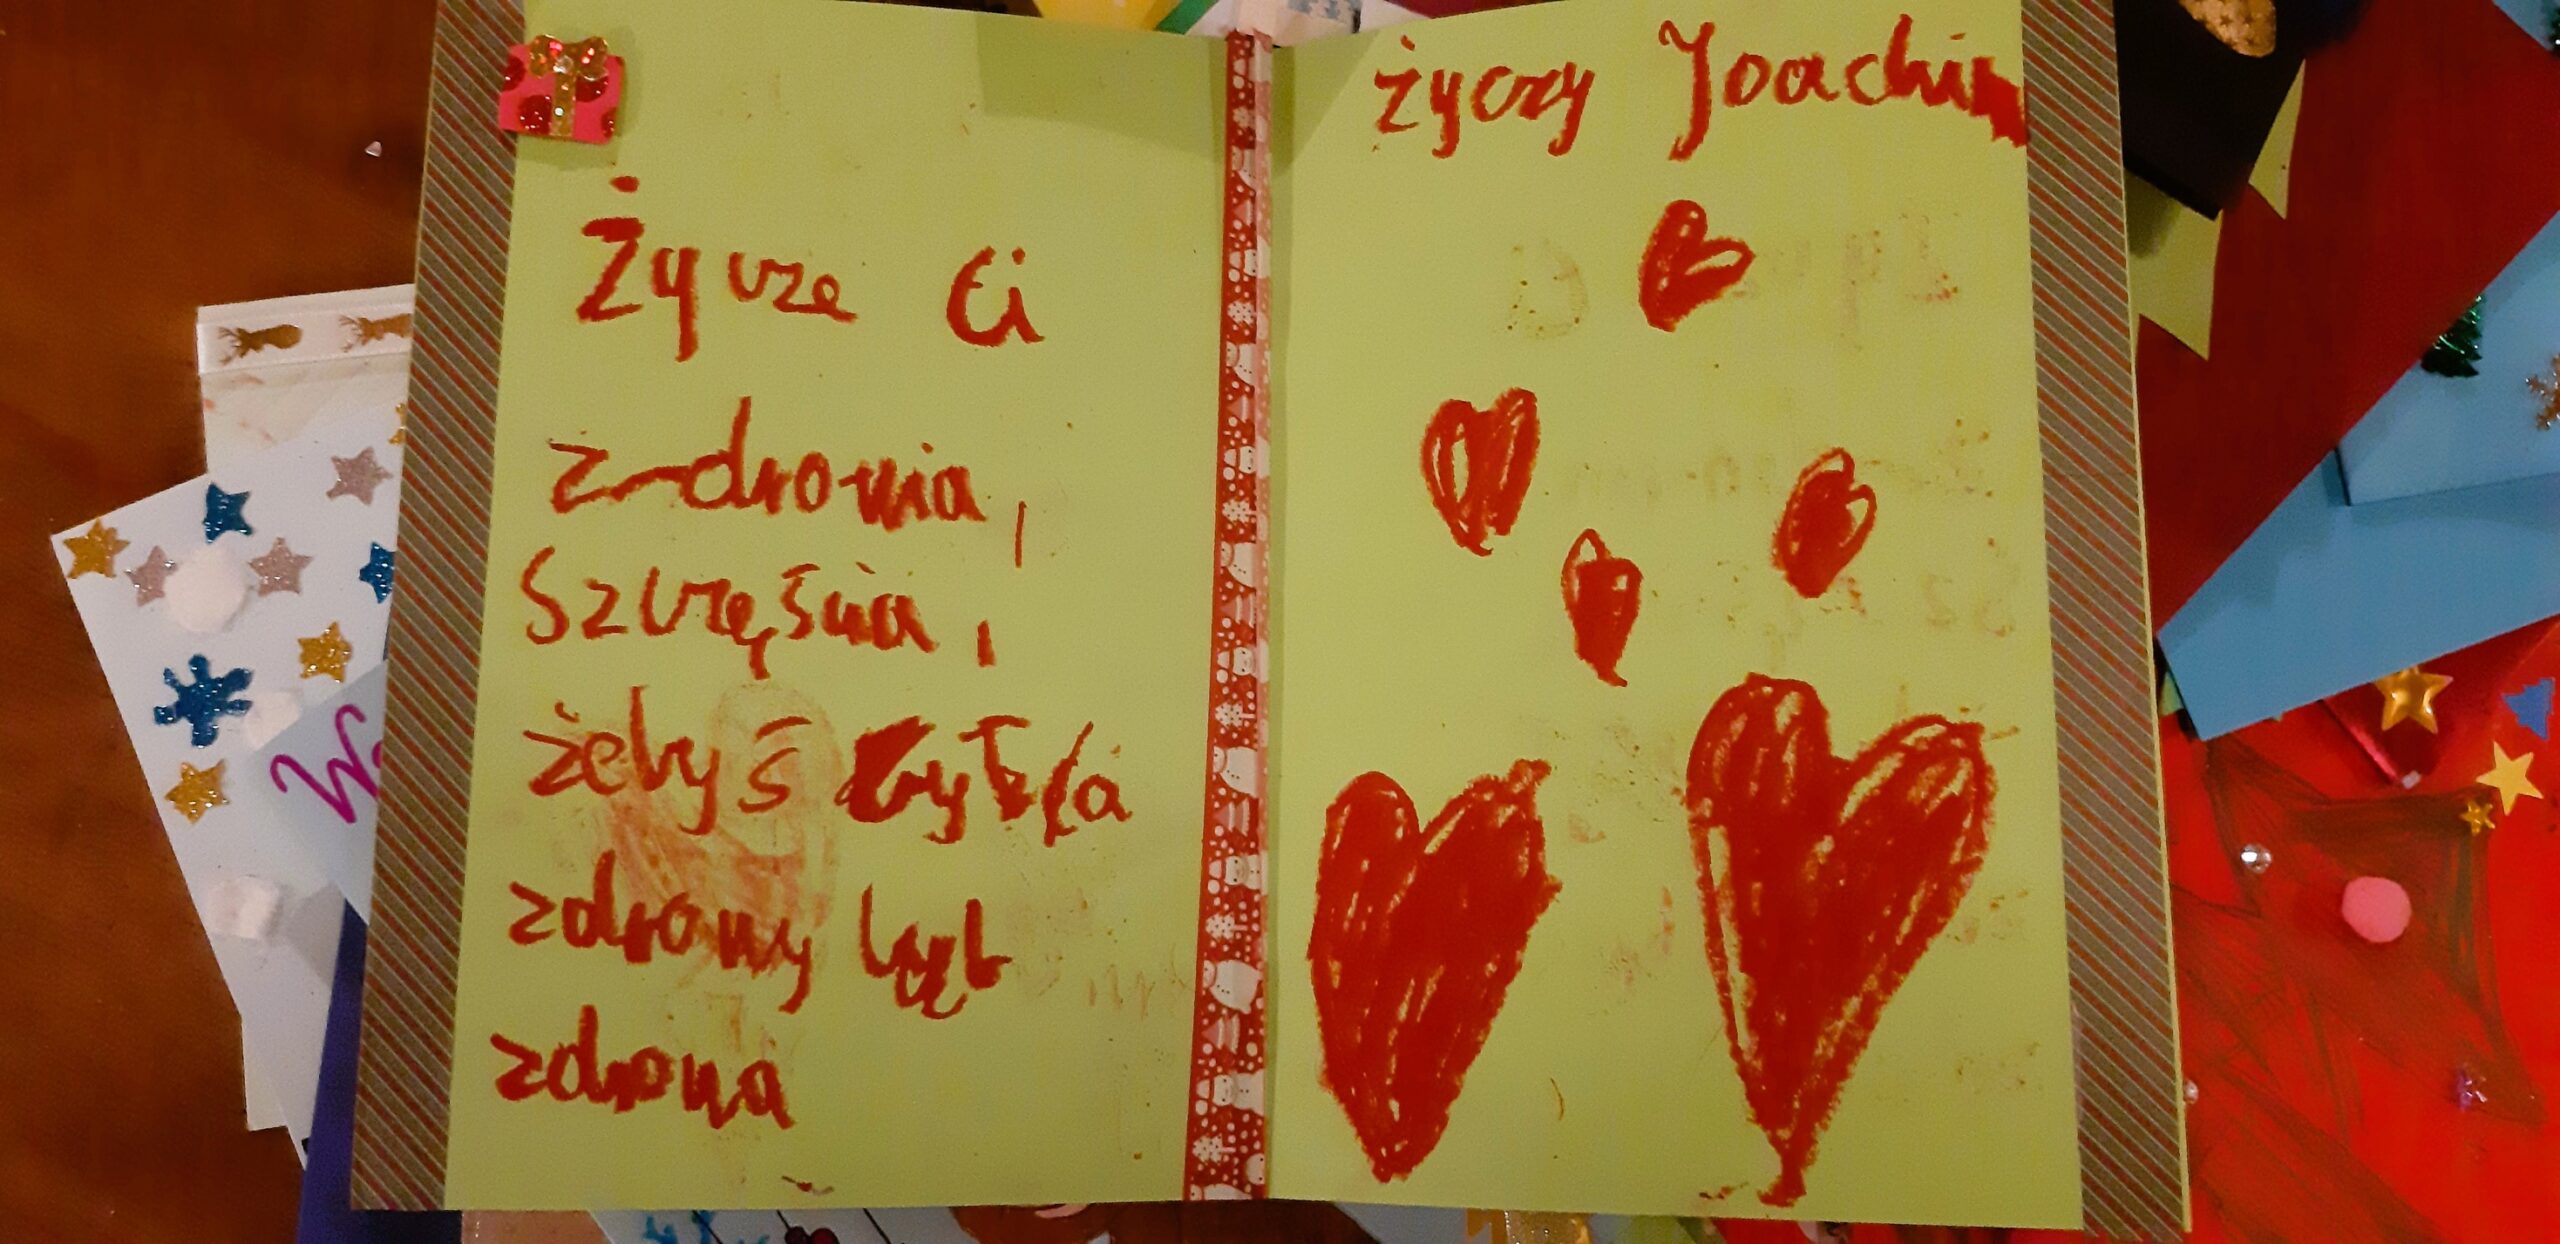 Życze Ci
zdrowia,
Szczęścia,
żebyś był/a
zdrowy był
zdrowa
życzy Joachim